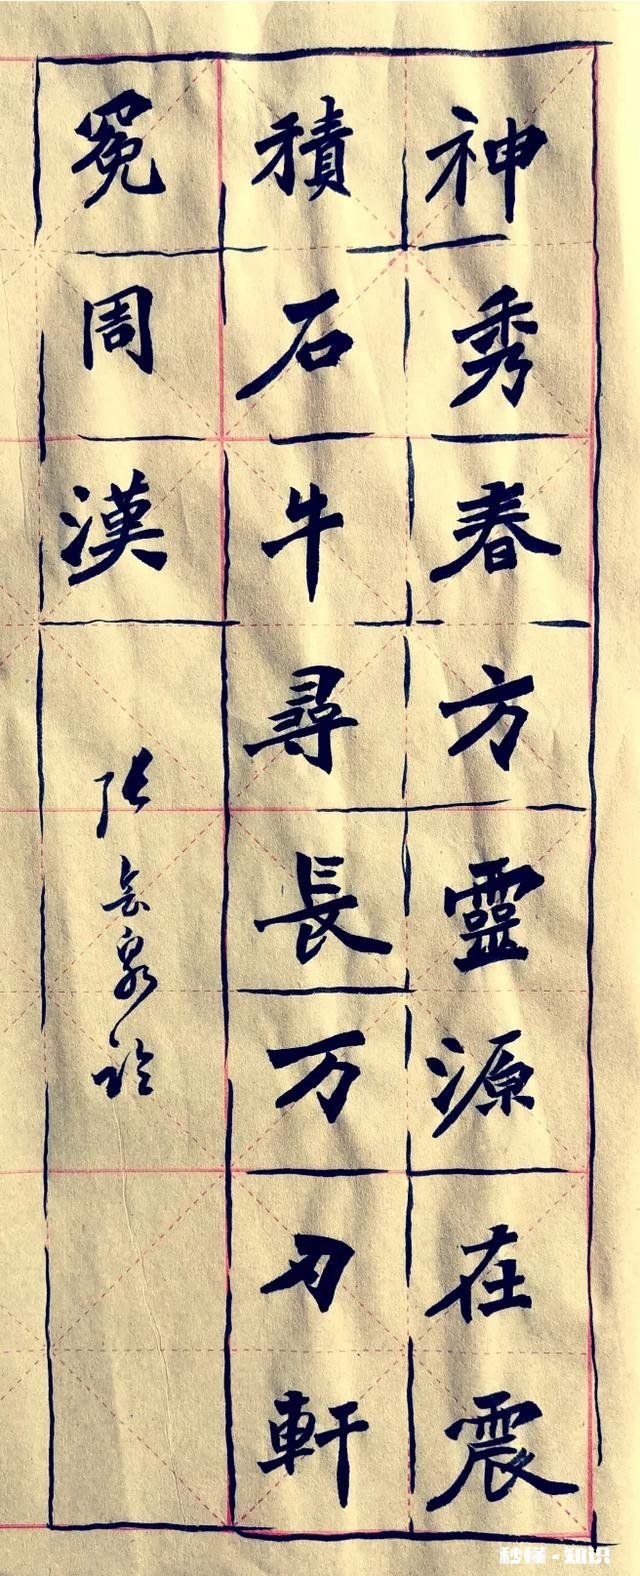 神秀春方靈源在震
積石牛尋長万刃軒
冕周漢
张会泉临
秒懂-知识